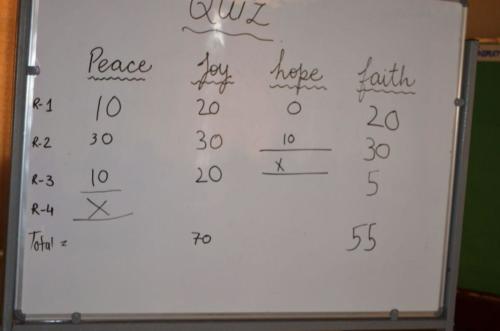 QUIZ
Peace Joy hope faith
R-1 10 20 0 20
R-2 30 30 10 30
R-3 10 20 X 5
R-4 X
Total = 70 55